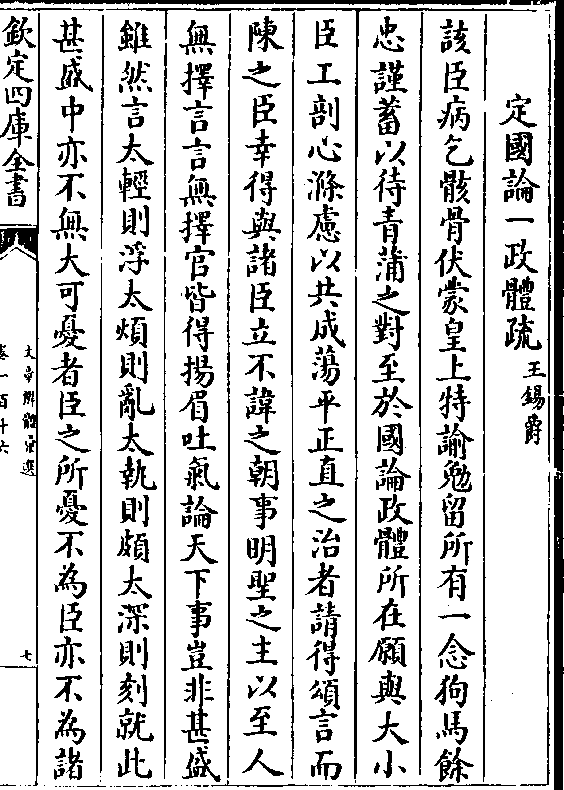 定國論一政體疏 王錫爵
該臣病乞骸骨伏蒙皇上特諭勉留所有一念狗馬餘
忠謹蓄以待青蒲之對至於國論政體所在願與大小
臣工剖心滌慮以共成蕩平正直之治者請得頌言而
陳之臣幸得與諸臣立不諱之朝事明聖之主以至人
無擇言言無擇官皆得揚眉吐氣論天下事豈非甚盛
雖然言太輕則浮太煩則亂太執則頗太深則刻就此
甚盛中亦不無大可憂者臣之所憂不為臣亦不為諸
欽定四庫全書
文章辨體彙選
卷一百十六
七